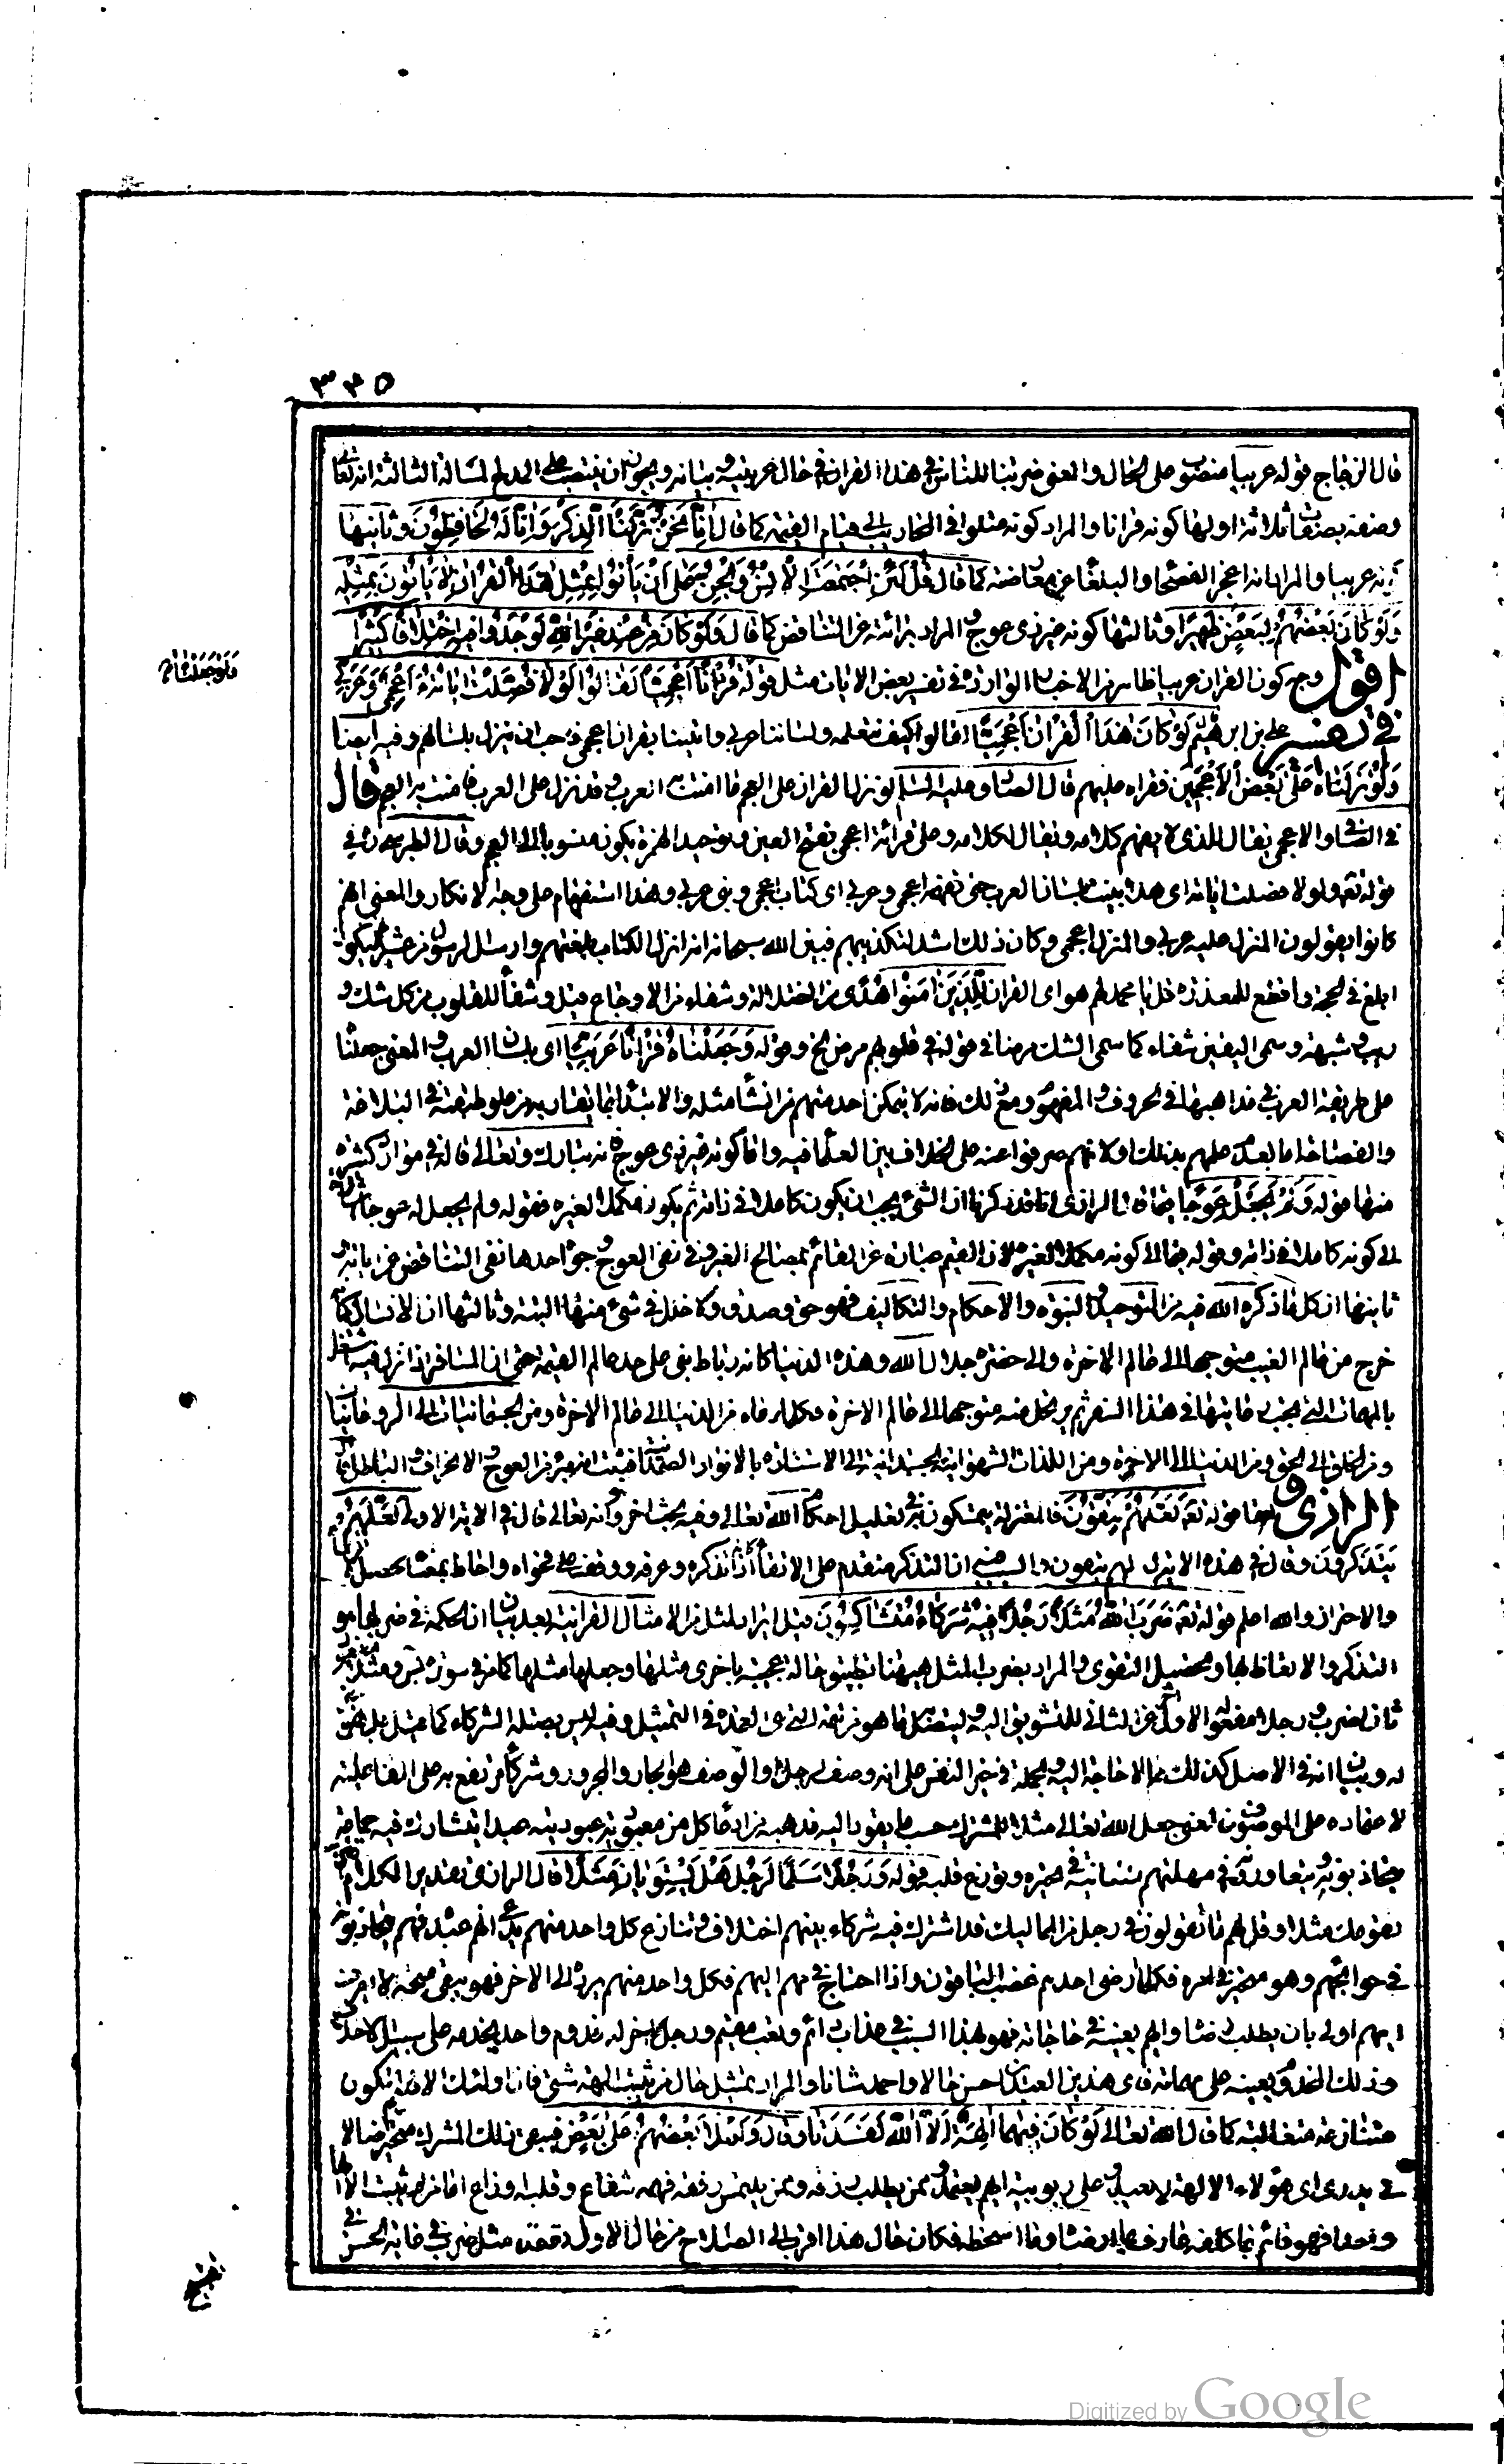 ٣٣٥
قال الزجاج قوله عربيا منصوب على الحال والمعنى ضربنا للناس في هذا القران في حال عربيته وبيانه ويجوز ان ينتصب على المدح المسالة الثالثة انه تعالى
وصفه بصفات ثلاثة اولها كونه قرانا والمراد كونه متلوا في المحاريب الى قيام القيمة كما قال اِنّا نَحْنُ نَزَّلْنَا الذِّكْرَ وَاِنّا لَهُ لَحافِظُونَ وثانيها
كونه عربيا والمراد انه اعجز الفصحاء والبلغاء عن معارضته كما قال قُلْ لَئِنِ اجْتَمَعَتِ الْاِنْسُ وَالْجِنُّ عَلى اَنْ يَأْتُوا بِمِثْلِ هذَا الْقُرْانِ لا يَأْتُونَ بِمِثْلِهِ
وَلَوْ كانَ بَعْضُهُمْ لِبَعْضٍ ظَهِيرًا وثالثها كونه غير ذي عوج والمراد برائته عن التناقض كما قال وَلَوْ كانَ مِنْ عِنْدِ غَيْرِ اللهِ لَوَجَدُوا فيهِ اخْتِلافًا كَثيرًا
اقول وجه كون القران عربيا ظاهر من الاخبار الواردة في تفسير بعض الايات مثل قوله قُرْانًا اَعْجَمِيًّا لَقالُوا لَوْلا فُصِّلَتْ اياتُهُ ءَاَعْجَمِيٌّ وَعَرَبِيٌّ
وَلَوْ جَعَلْناهُ
في تفسير علي بن ابرهيم لَوْ كانَ هذَا الْقُرْانُ اَعْجَمِيًّا لقالوا كيف نتعلمه ولساننا عربي واتيتنا بقران اعجمي فاحب ان ينزل بلسانهم وفيه ايضا
وَلَوْ نَزَّلْناهُ عَلى بَعْضِ الْاَعْجَمينَ فقراه عليهم قال الصادق عليه السلم لو نزل القران على العجم ما امنت به العرب وقد نزل على العرب فامنت به العجم قال
في الصافي والاعجمي يقال للذي لا يفهم كلامه ويقال لكلامه وعلى قرائة اعجمي بفتح العين وتوحيد الهمزة يكون منسوبا الى العجم وقال الطبرسي ره في
قوله تعه ولولا فصلت اياته اى هلا بينت بلسان العرب حتى نفهمه اعجمي وعربي اى كتاب اعجمي ونبي عربي وهذا استفهام على وجه الانكار والمعنى انهم
كانوا يقولون المنزل عليه عربي والمنزل اعجمي وكان ذلك اشد لتكذيبهم فبين الله سبحانه انه انزل الكتاب بلغتهم وارسل الرسول من عشيرتهم ليكون
ابلغ في الحجة واقطع للمعذرة قل يا محمد لهم هو اى القران لِلَّذينَ امَنُوا هُدًى من الضلالة وشفاء من الاوجاع وقيل وشفاء للقلوب من كل شك و
ريب وشبهة وسمى اليقين شفاء كما سمى الشك مرضا في قوله في قلوبهم مرض الخ وقوله وَجَعَلْناهُ قُرْانًا عَرَبِيًّا اى بلسان العرب والمعنى جعلنا
على طريقة العرب في مذاهبها في الحروف والمفهوم ومع ذلك فانه لا يتمكن احد منهم من انشاء مثله والابتداء بما يقاربه من علو طبقته في البلاغة
والفصاحة اما لعدم علمهم بذلك او لانهم صرفوا عنه على الخلاف بين العلماء فيه واما كونه غير ذي عوج فانه تبارك وتعالى قال في موارد كثيرة
منها قوله وَلَمْ يَجْعَلْ لَهُ عِوَجًا قيما قال الرازى انا قد ذكرنا ان الشيء يجب ان يكون كاملا في ذاته ثم يكون مكملا لغيره فقوله ولم يجعل له عوجا اشارة
الى كونه كاملا في ذاته وقوله قيما الى كونه مكملا لغيره لان القيم عبارة عن القائم بمصالح الغير وفي نفى العوج وجوه احدها نفى التناقض عن اياته و
ثانيها ان كل ما ذكره الله فيه من التوحيد والنبوة والاحكام والتكاليف فهو حق وصدق ولا خلل في شيء منها البتة وثالثها ان الانسان كانه
خرج من عالم الغيب متوجها الى عالم الاخرة والى حضرة جلال الله وهذه الدنيا كانه رباط بنى على حد عالم القيمة حتى ان المسافر اذا نزل فيه اشتغل
بالمهمات التي يجب رعايتها في هذا السفر ثم يرتحل منه متوجها الى عالم الاخرة وكلما دعاه من الدنيا الى عالم الاخرة ومن الجسمانيات الى الروحانيات
ومن الخلق الى الحق ومن الدنيا الى الاخرة ومن اللذات الشهوانية الجسدانية الى الاستنارة بالانوار الصمدانية فثبت انه مبرء من العوج والانحراف والباطل قال
الرازى ايضا قوله تعه لَعَلَّهُمْ يَتَّقُونَ فالمعتزلة يتمسكون به في تعليل احكام الله تعالى وفيه بحث اخر وانه تعالى قال في الاية الاولى لَعَلَّهُمْ
يَتَذَكَّرُونَ وقال في هذه الاية لعلهم يتقون والسبب فيه ان التذكر متقدم على الاتقاء لانه اذا تذكره وعرفه ووقف على فحواه واحاط بمعناه حصل الاتقاء
والاحتراز والله اعلم قوله تعه ضَرَبَ اللهُ مَثَلًا رَجُلًا فيهِ شُرَكاءُ مُتَشاكِسُونَ قيل ايراد لمثل من الامثال القرانية بعد بيان ان الحكمة في ضربها هو
التذكر والاتعاظ بها وتحصيل التقوى والمراد بضرب المثل هيهنا تطبيق حالة عجيبة باخرى مثلها وجعلها مثلها كما مر في سورة يس ومثلا مفعول
ثان لضرب ورجلا مفعوله الاول اخر عن الثاني للتشويق اليه وليتصل به ما هو من تتمته التي هي العمدة في التمثيل وفيه ليس بصلة لشركاء كما قيل بل هو خبر
له وبيان انه في الاصل كذلك مما لا حاجة اليه والجملة في حيز النصب على انه وصف لرجلا او الوصف هو الجار والمجرور وشركاء مرتفع به على الفاعلية
لاعتماده على الموصوف فالمعنى جعل الله تعالى مثلا للمشرك حسب ما يقود اليه مذهبه من ادعاء كل من معبوديه عبوديته عبدا يتشارك فيه جماعة
يتجاذبونه ويتعاورونه في مهماتهم المتباينة في تحيره وتوزع قلبه قوله وَرَجُلًا سَلَمًا لِرَجُلٍ هَلْ يَسْتَوِيانِ مَثَلًا قال الرازى تقدير الكلام اضرب
لقومك مثلا وقل لهم ما تقولون في رجل من المماليك قد اشترك فيه شركاء بينهم اختلاف وتنازع كل واحد منهم يدعى انه عبده فهم يتجاذبونه
في حوائجهم وهو متحير في امره فكلما ارضى احدهم غضب الباقون واذا احتاج في مهم اليهم فكل واحد منهم يرده الى الاخر فهو يبقى متحيرا لا يعرف
ايهم اولى بان يطلب رضاه وايهم يعينه في حاجاته فهو بهذا السبب في عذاب دائم وتعب مقيم ورجل اخر له مخدوم واحد يخدمه على سبيل الاخلاص
وذلك المخدوم يعينه على مهماته فاى هذين العبدين احسن حالا واحمد شانا والمراد تمثيل حال من يثبت الهة شتى فان اولئك الالهة تكون
متنازعة متغالبة كما قال الله تعالى لَوْ كانَ فيهِما الِهَةٌ اِلَّا اللهُ لَفَسَدَتا وقال وَلَعَلا بَعْضُهُمْ عَلى بَعْضٍ فيبقى ذلك المشرك متحيرا ضالا
لا يدرى اى هؤلاء الالهة يعبد وعلى ربوبية ايهم يعتمد وممن يطلب رزقه وممن يلتمس رفقه فهمه شفاع وقلبه اوزاع اما من لم يثبت الا الها
واحدا فهو قائم بما كلفه عارف بما ارضاه وما اسخطه فكان حال هذا اقرب الى الصلاح من حال الاول وهذا مثل ضرب في غاية الحسن